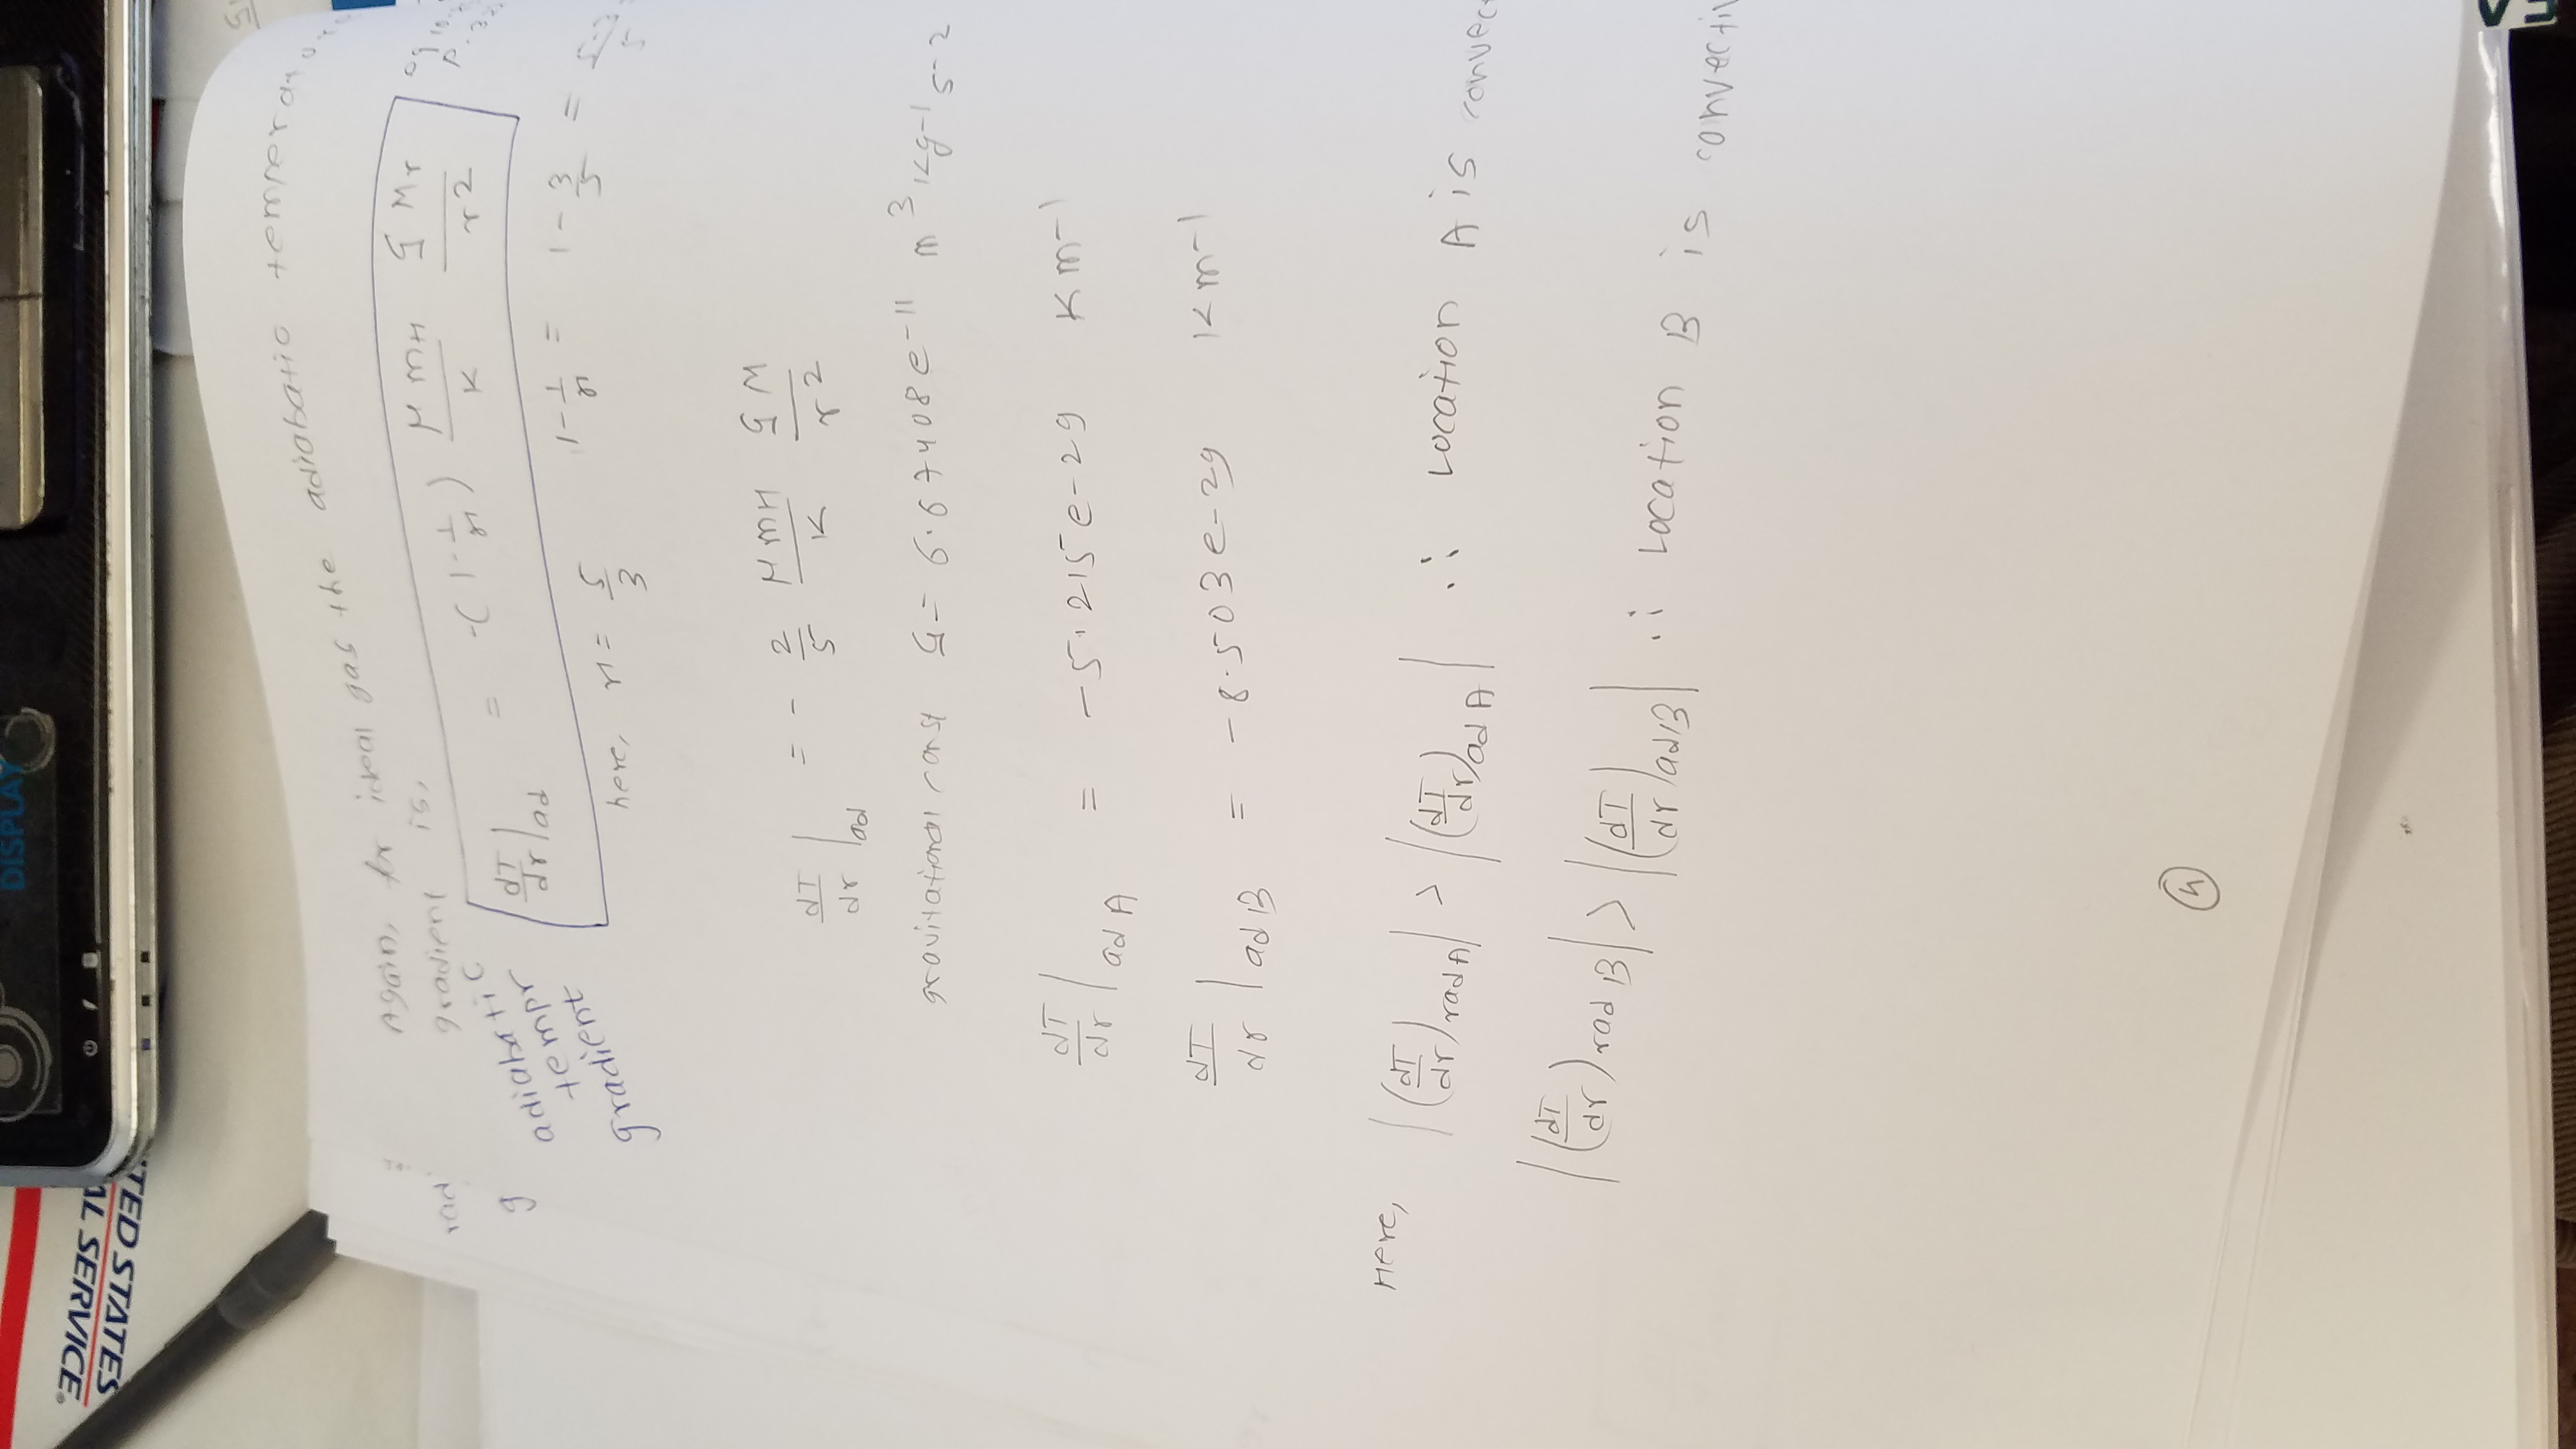 DISPLAY
UNITED STATES
AL SERVICE®
Again, for ideal gas the adiabatic temperature
gradient is,
rad
g
adiabatic
tempr
gradient
dT/dr|ad = -(1-1/γ) μ mH/K G Mr/r2
here, γ = 5/3 1-1/γ = 1-3/5 =
dT/dr|ad = - 2/5 μ mH/K G M/r2
gravitational const G = 6.67408e-11 m3 kg-1 s-2
dT/dr|ad A = -5.215e-29 K m-1
dT/dr|ad B = -8.503e-29 K m-1
Here, |(dT/dr)rad A| > |(dT/dr)ad A| ∴ Location A is convect
|(dT/dr)rad B| > |(dT/dr)ad B| ∴ Location B is convectiv
4